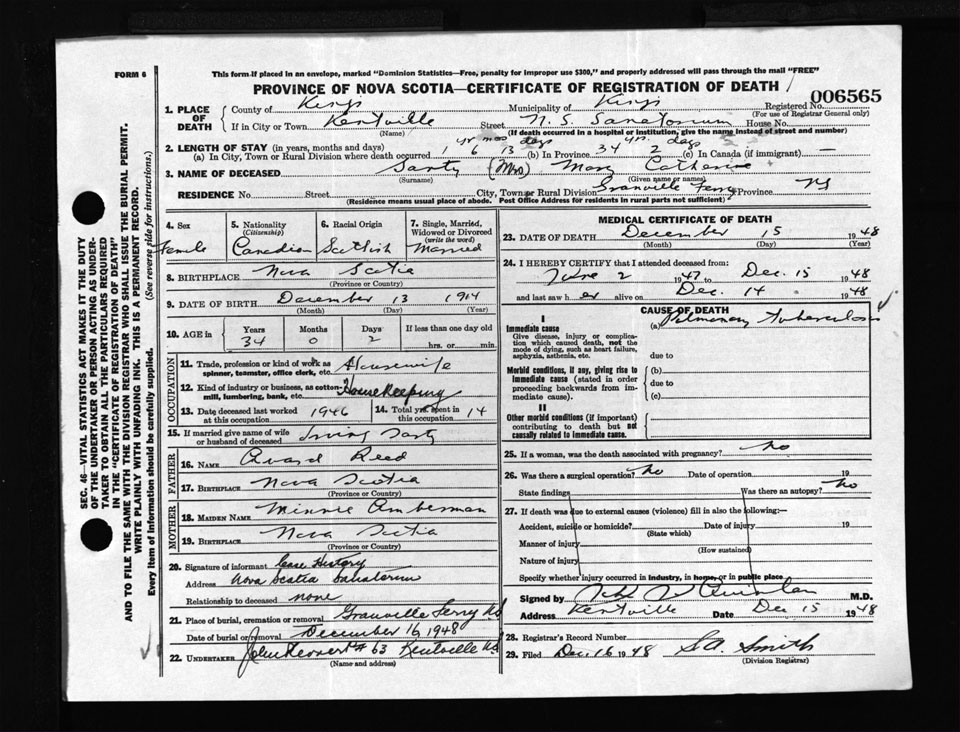 FORM 6
This form if placed in an envelope, marked "Dominion Statistics—Free, penalty for improper use $300," and properly addressed will pass through the mail "FREE"
PROVINCE OF NOVA SCOTIA—CERTIFICATE OF REGISTRATION OF DEATH
006565
1. PLACE OF DEATH County of Kings Municipality of Kings Registered No.
(For use of Registrar General only)
If in City or Town Kentville Street N. S. Sanatorium House No.
(Name) (If death occurred in a hospital or institution, give the name instead of street and number)
2. LENGTH OF STAY (in years, months and days) yr mos days yrs. days
(a) In City, Town or Rural Division where death occurred 1 6 13 (b) In Province 34 2 (c) In Canada (if immigrant) —
3. NAME OF DECEASED Sarty (Mrs) Mary Catherine
(Surname) (Given name or names)
RESIDENCE No. Street City, Town or Rural Division Granville Ferry Province NS
(Residence means usual place of abode. Post Office Address for residents in rural parts not sufficient)
4. Sex
Female
5. Nationality
(Citizenship)
Canadian
6. Racial Origin
Scottish
7. Single, Married, Widowed or Divorced
(write the word)
Married
8. BIRTHPLACE Nova Scotia
(Province or Country)
9. DATE OF BIRTH December 13 1914
(Month) (Day) (Year)
10. AGE in Years Months Days If less than one day old
34 0 2 hrs. or min.
OCCUPATION
11. Trade, profession or kind of work as spinner, teamster, office clerk, etc. Housewife
12. Kind of industry or business, as cotton-mill, lumbering, bank, etc. Home Keeping
13. Date deceased last worked at this occupation 1946 14. Total yrs. spent in this occupation 14
15. If married give name of wife or husband of deceased Irving Sarty
FATHER
16. NAME Avard Reed
17. BIRTHPLACE Nova Scotia
(Province or Country)
MOTHER
18. MAIDEN NAME Minnie Amberman
19. BIRTHPLACE Nova Scotia
(Province or Country)
20. Signature of informant Case History
Address Nova Scotia Sanatorium
Relationship to deceased none
21. Place of burial, cremation or removal Granville Ferry NS
Date of burial or removal December 16 1948
22. UNDERTAKER # 63 Kentville NS
(Name and address)
MEDICAL CERTIFICATE OF DEATH
23. DATE OF DEATH December 15 1948
(Month) (Day) (Year)
24. I HEREBY CERTIFY that I attended deceased from:
June 2 1947 to Dec. 15 1948
and last saw her alive on Dec. 14 1948
CAUSE OF DEATH
I
Immediate cause (a) Pulmonary Tuberculosis
Give disease, injury or complication which caused death, not the mode of dying, such as heart failure, asphyxia, asthenia, etc.
due to
Morbid conditions, if any, giving rise to immediate cause (stated in order proceeding backwards from immediate cause).
(b)
due to
(c)
II
Other morbid conditions (if important) contributing to death but not causally related to immediate cause.
25. If a woman, was the death associated with pregnancy? no
26. Was there a surgical operation? no Date of operation 19
State findings Was there an autopsy? no
27. If death was due to external causes (violence) fill in also the following:—
Accident, suicide or homicide? Date of injury 19
(State which)
Manner of injury
(How sustained)
Nature of injury
Specify whether injury occurred in industry, in home, or in public place
Signed by Quinlan M.D.
Address Kentville Date Dec 15 1948
28. Registrar's Record Number
29. Filed Dec. 16 1948 S.A. Smith
(Division Registrar)
SEC. 46—VITAL STATISTICS ACT MAKES IT THE DUTY
OF THE UNDERTAKER OR PERSON ACTING AS UNDER-
TAKER TO OBTAIN ALL THE PARTICULARS REQUIRED
IN THE "CERTIFICATE OF REGISTRATION OF DEATH"
AND TO FILE THE SAME WITH THE DIVISION REGISTRAR WHO SHALL ISSUE THE BURIAL PERMIT.
WRITE PLAINLY WITH UNFADING INK. THIS IS A PERMANENT RECORD.
Every item of information should be carefully supplied. (See reverse side for instructions.)